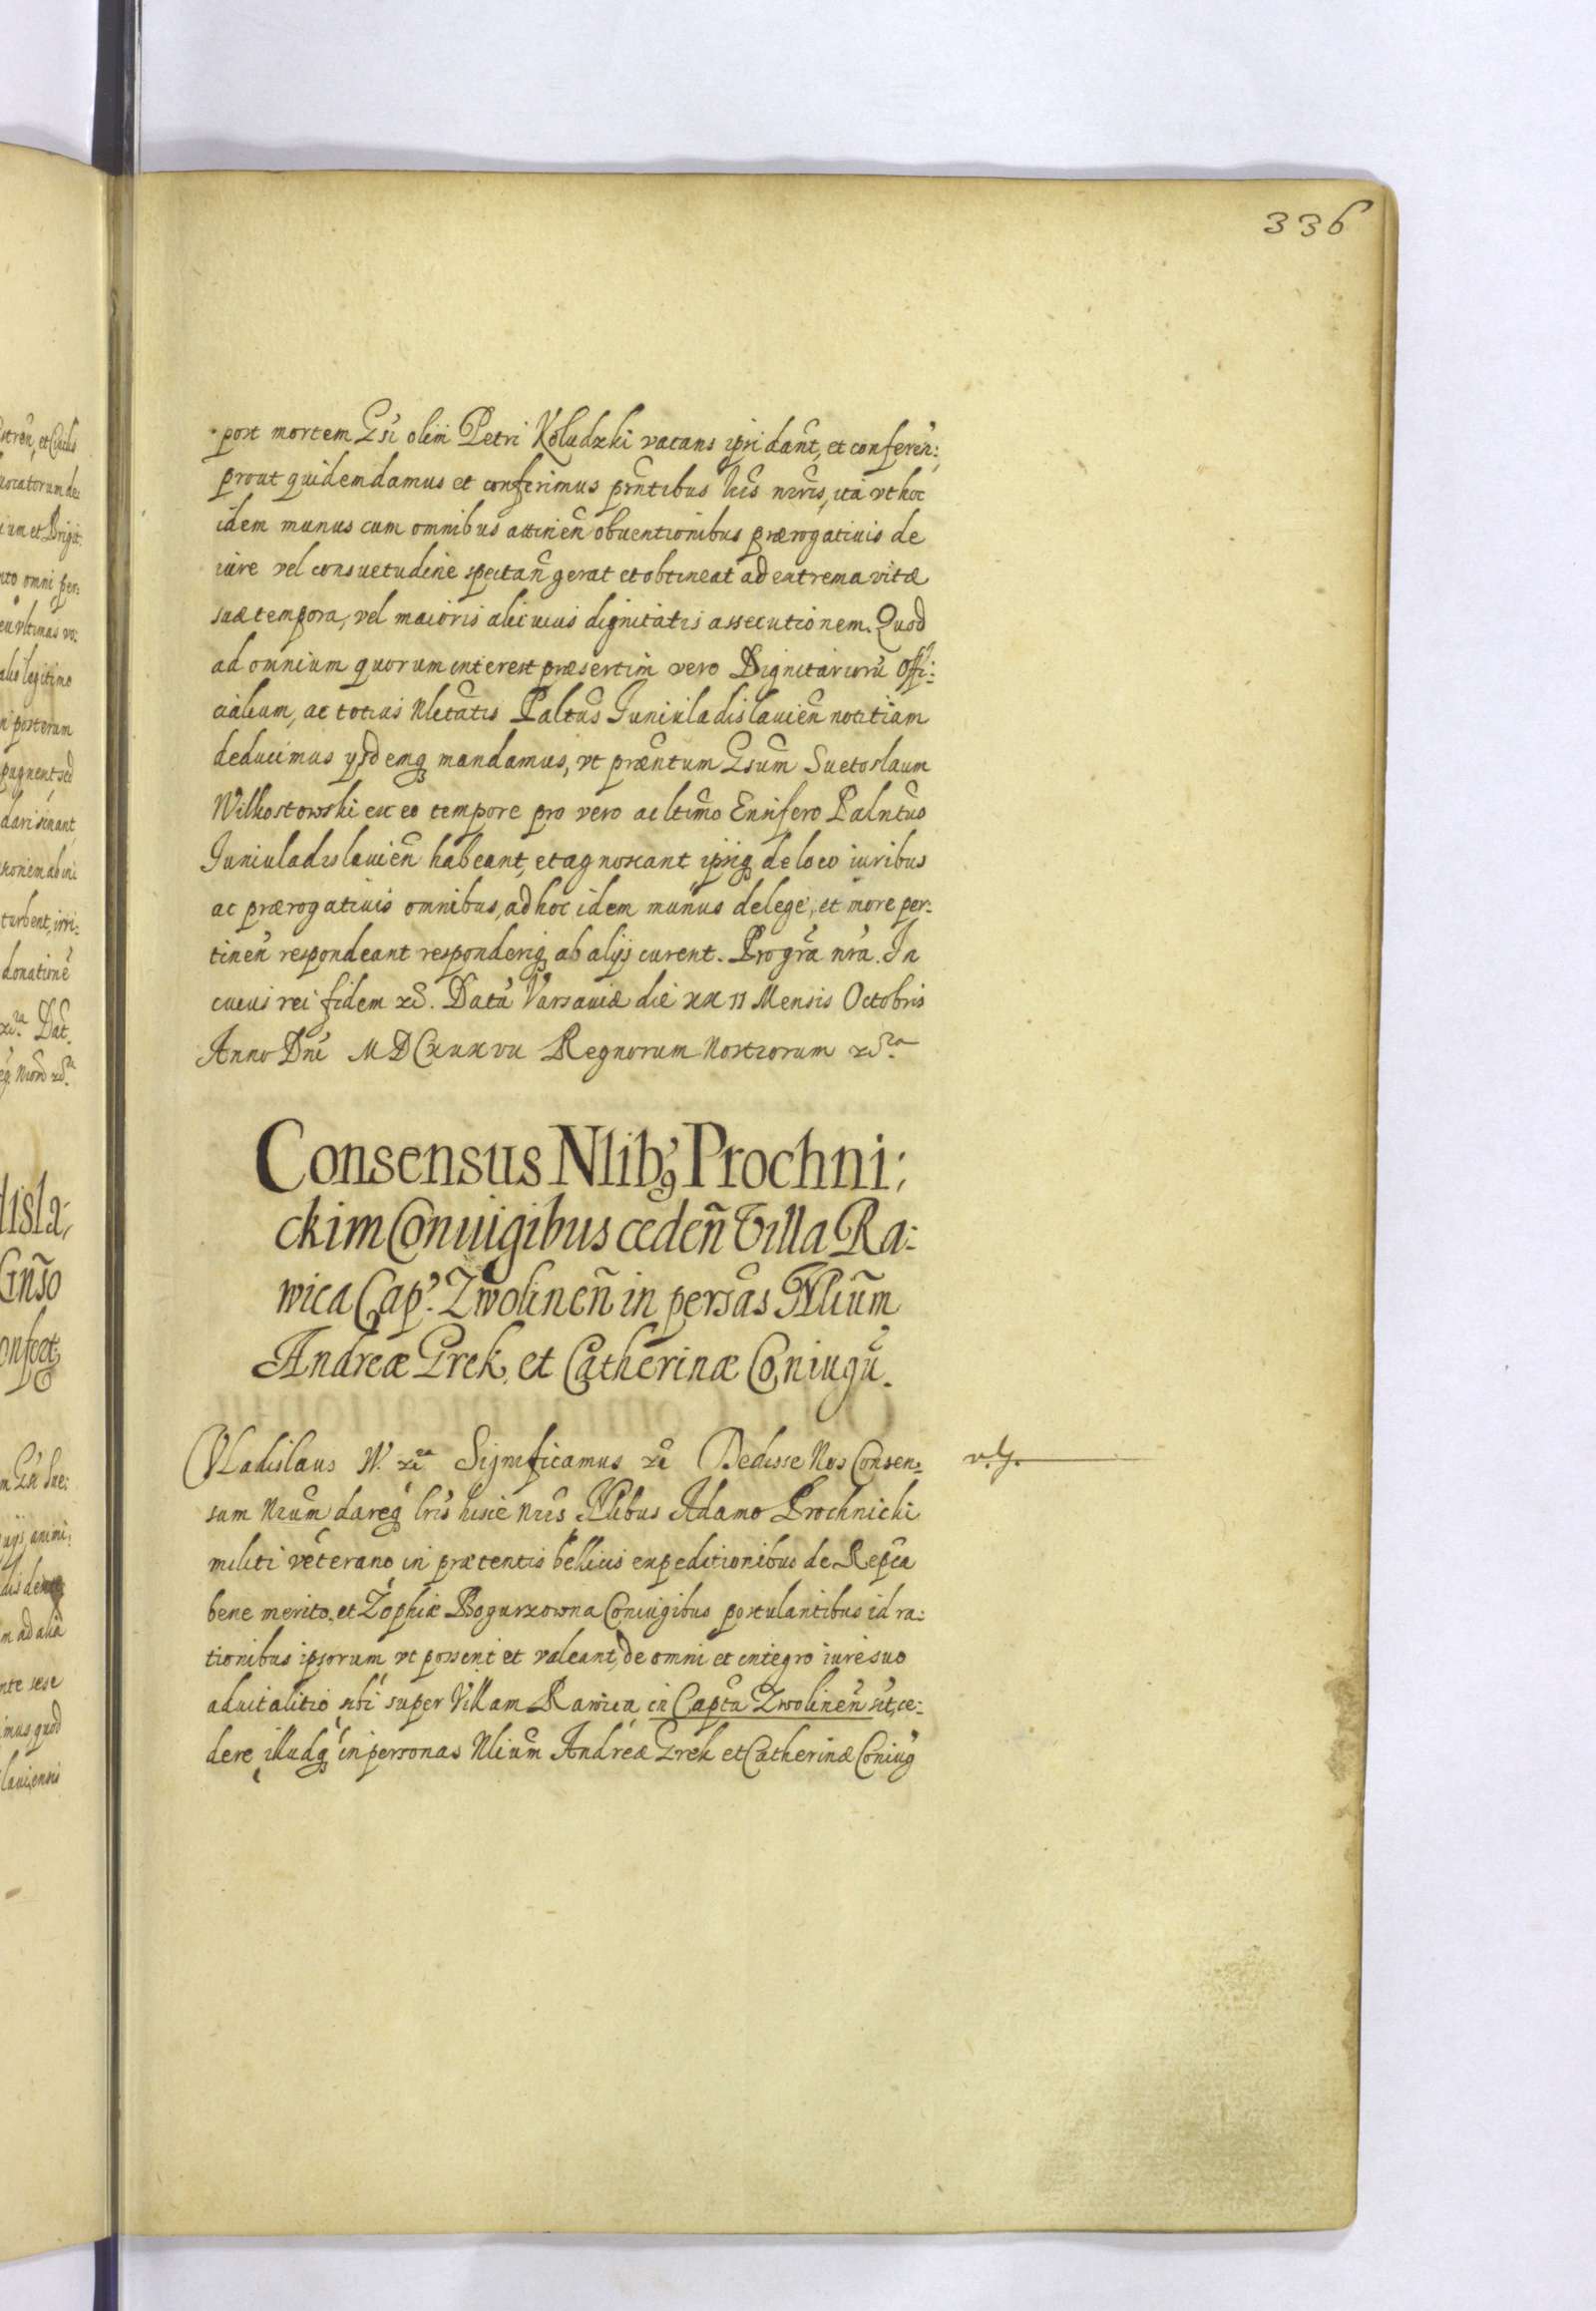 336
post mortem Gsi olim Petri Kołudzki vacans ipsi dant, et conferen:
prout quidem damus et conferimus pntibus lris nris, ita vt hoc
idem munus cum omnibus attinen obuentionibus prærogatiuis de
iure vel consuetudine spectan gerat et obtineat ad extrema vitæ
suæ tempora, vel maioris alicuius dignitatis assecutionem. Quod
ad omnium quorum interest præsertim vero Dignitariorũ Offi:
cialium, ac totius Nlitatis Paltus Iuniuladislauien notitiam
deducimus ysdemq mandamus, vt præntum Gsum Suetoslaum
Wilkostowski ex eo tempore pro vero ac ltimo Ensifero Palntus
Iuniuladislauien habeant, et agnoscant ipsiq de loco iuribus
ac prærogatiuis omnibus, ad hoc idem munus de lege, et more per:
tinen respondeant responderiq ab alijs curent. Pro gra nra. In
cuius rei fidem &c. Datũ Varsauiæ die XX II Mensis Octobris
Anno Dni MDCXXXVII Regnorum Nostrorum &cra
Consensus Nlib9 Prochni:
ckim Coniugibus cedeñ Villa Ra:
wica Cap. Zwolineñ in persas Nliũm
Andreæ Grek, et Catherinæ Coniugũ.
Vladislaus IV. &cra Significamus &c Dedisse Nos Consen: v. g.
sum Nrum dareq lris hisce nris Nlibus Adamo Prochnicki
militi veterano in prætentis bellicis expeditionibus de Repca
bene merito, et Zophiæ Bogurzowna Coniugibus postulantibus id ra:
tionibus ipsorum vt possent et valeant, de omni et integro iure suo
aduitalitio sibi super Villam Rawica in Captu Zwolinen sit, ce:
dere illudq in personas Nlium Andreæ Grek et Catherinæ Coniug